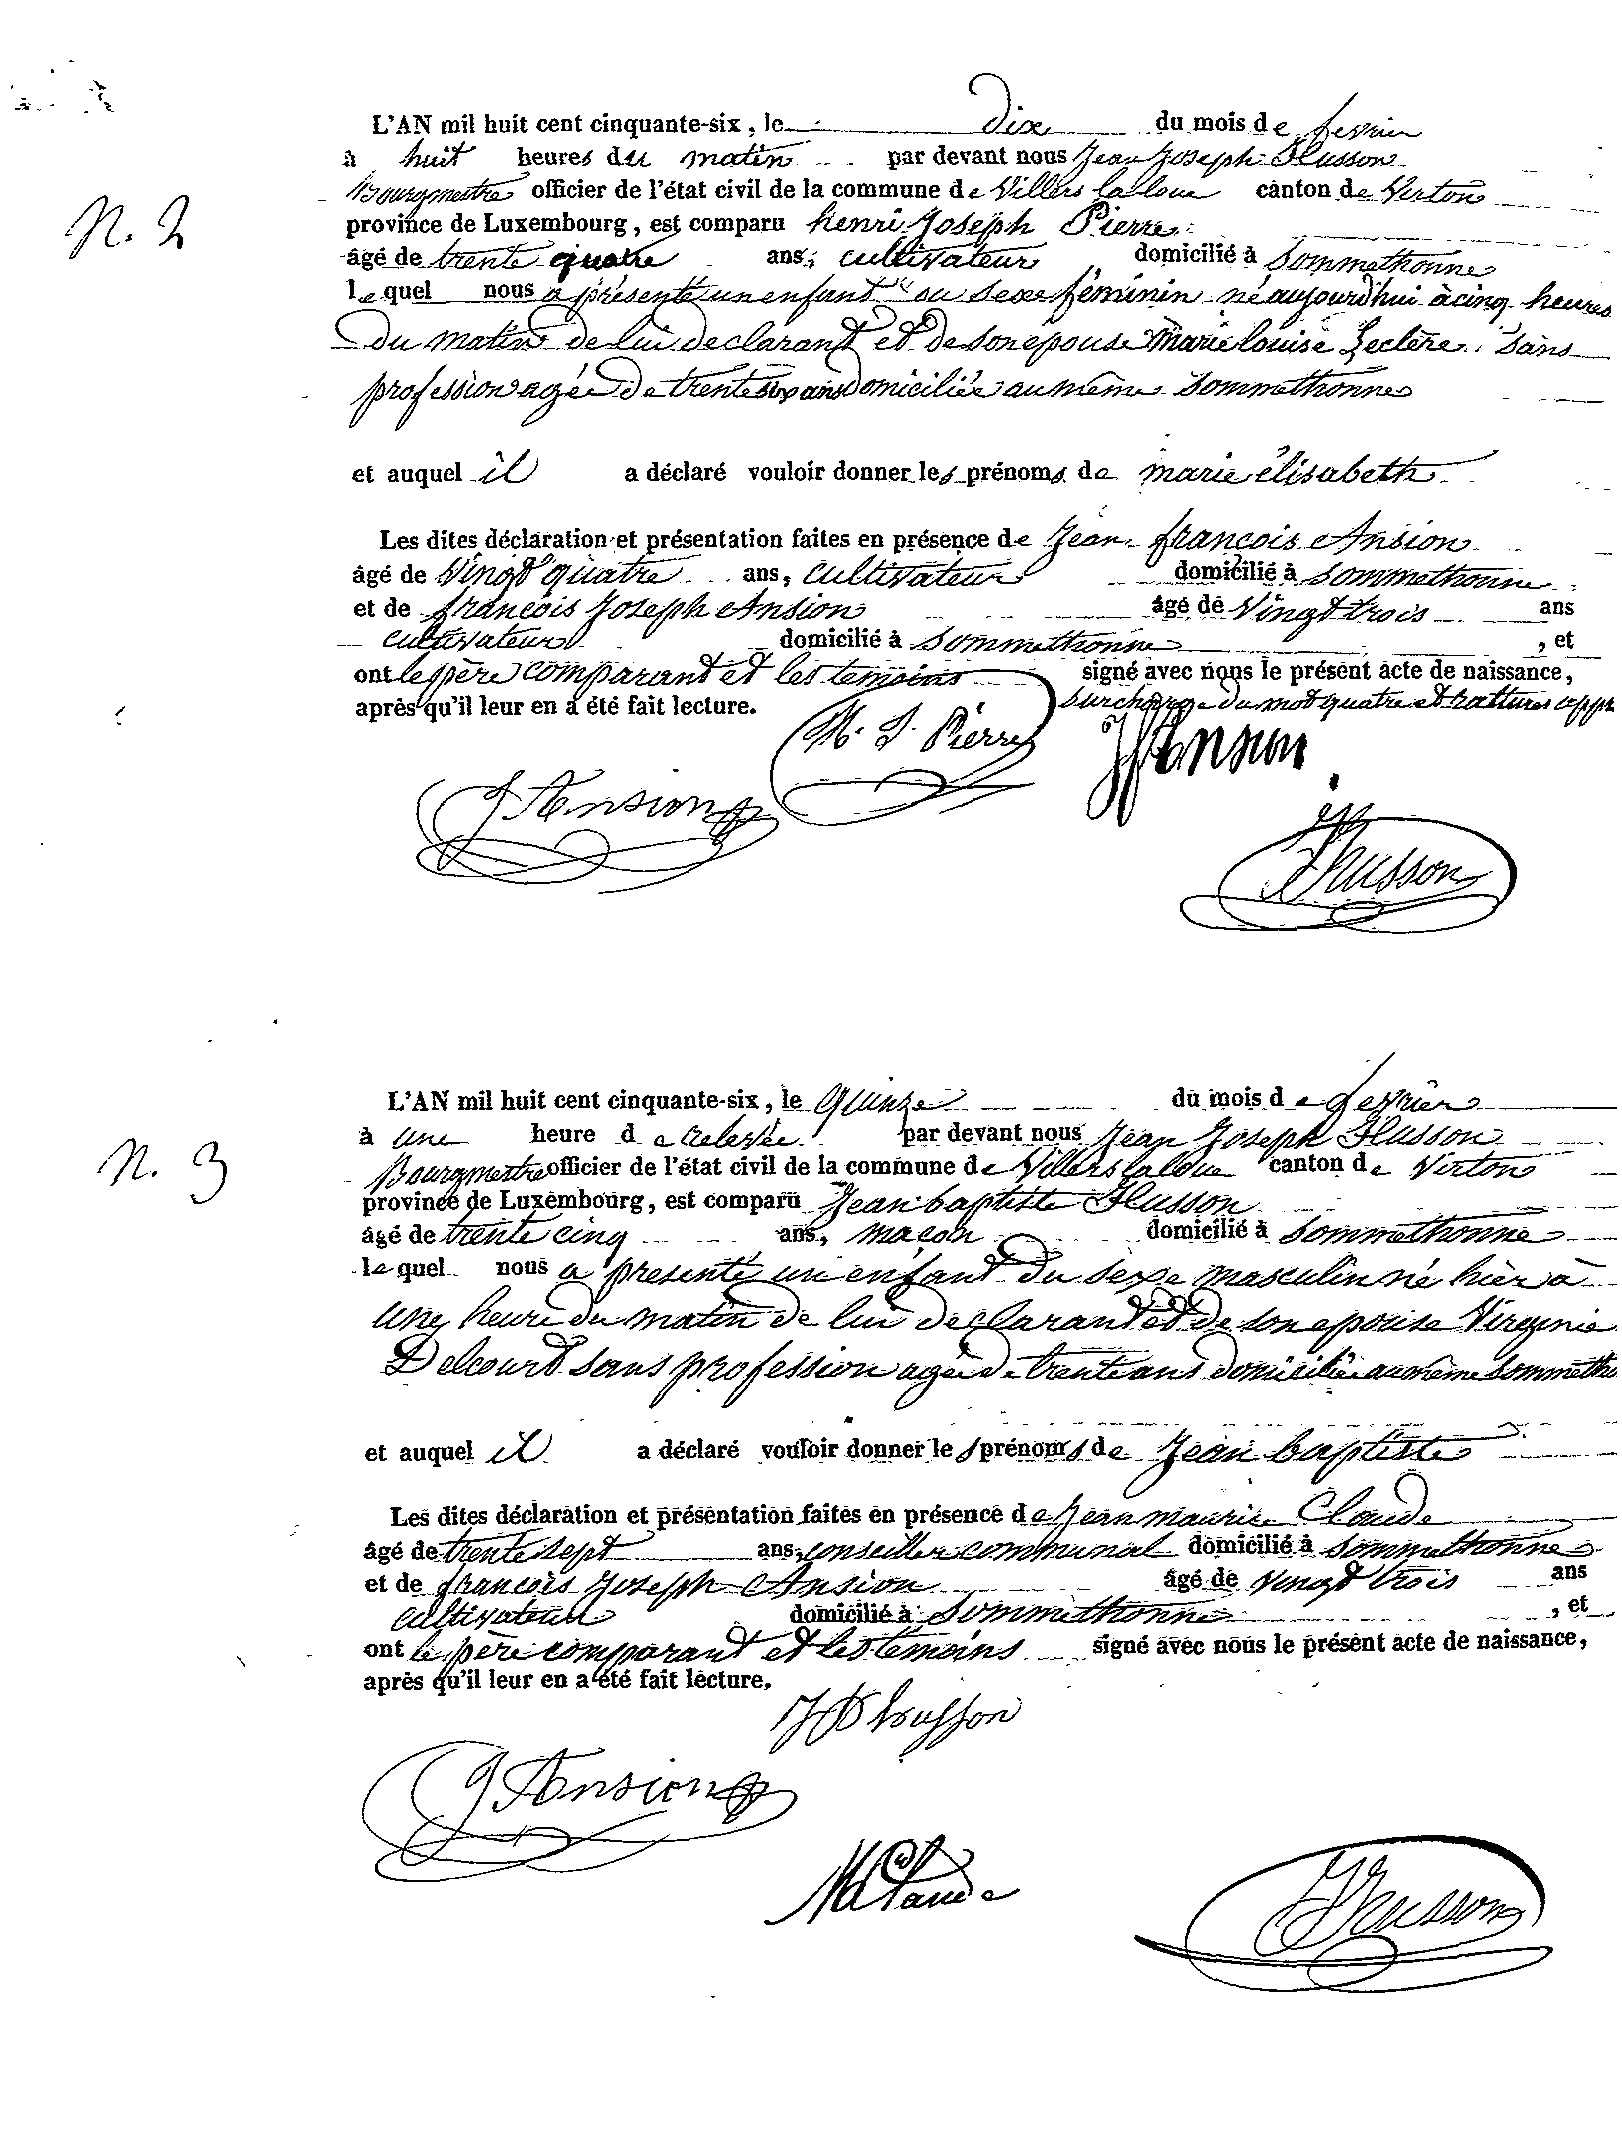 N. 2
L'AN mil huit cent cinquante-six, le dix du mois de fevrier
à huit heures du matin par devant nous Jean Joseph Husson
Bourgmestre officier de l'état civil de la commune de Villers la loue canton de Virton
province de Luxembourg, est comparu henri Joseph Pierre
âgé de trente quatre ans, cultivateur domicilié à Sommethonne
lequel nous a présenté un enfant du sexe féminin né aujourd'hui à cinq heures
du matin de lui declarant et de son épouse marie louise Leclère sans
profession agée de trente six ans domiciliée au même Sommethonne
et auquel il a déclaré vouloir donner les prénoms de marie élisabeth
Les dites déclaration et présentation faites en présence de Jean françois Ansion
âgé de Vingt quatre ans, cultivateur domicilié à Sommethonne
et de françois Joseph Ansion âgé de Vingt trois ans
cultivateur domicilié à Sommethonne , et
ont le père comparant et les temoins signé avec nous le présent acte de naissance,
après qu'il leur en a été fait lecture. surcharge du mot quatre et
H. J. Pierre
JfAnsion
fJAnsion
JJHusson
N. 3
L'AN mil huit cent cinquante-six, le quinze du mois de fevrier
à une heure de relevée par devant nous Jean Joseph Husson
Bourgmestre officier de l'état civil de la commune de Villers la loue canton de Virton
province de Luxembourg, est comparu Jean baptiste Husson
âgé de trente cinq ans, maçon domicilié à Sommethonne
lequel nous a présenté un enfant du sexe masculin né hier à
une heure du matin de lui declarant et de son epouse Virginie
Delcourt sans profession agée de trente ans domiciliée au même Sommetho
et auquel il a déclaré vouloir donner les prénoms de Jean baptiste
Les dites déclaration et présentation faites en présence de Jean maurice Claude
âgé de trente sept ans, conseiller communal domicilié à Sommethonne
et de françois Joseph Ansion âgé de vingt trois ans
cultivateur domicilié à Sommethonne , et
ont le père comparant et les temoins signé avec nous le présent acte de naissance,
après qu'il leur en a été fait lecture.
JBhusson
fJAnsion
MClaude
JJHusson